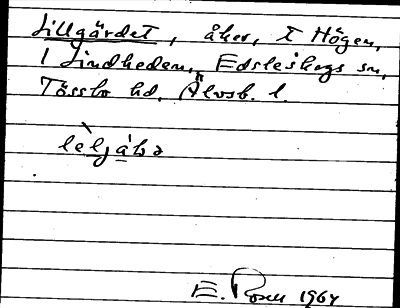 Lillgärdet, åker, t Högen,
1 Lindheden, Edsleskogs sn,
Tössbo hd, Älvsb. l.
E. Rosén 1964